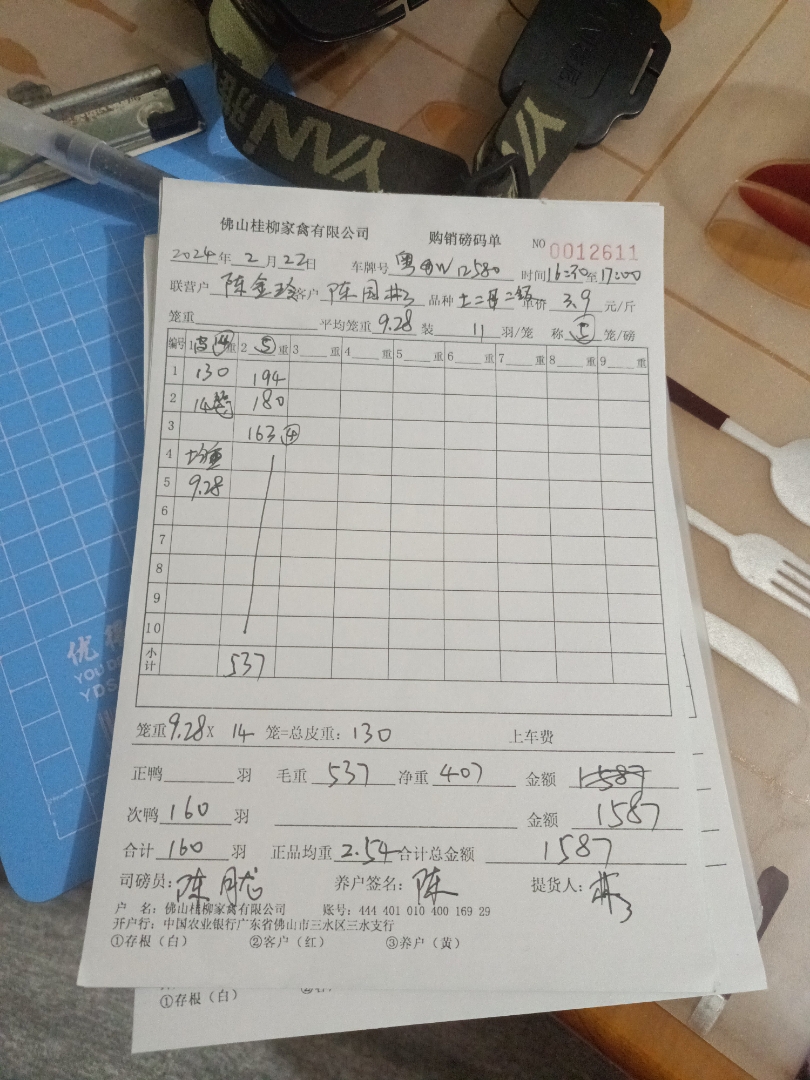 佛山桂柳家禽有限公司 购销磅码单 NO 0012611
2024年 2月 22日 车牌号 粤 W12580 时间 16:30至17:00
联营户 陈金玲 客户 陈国 品种 价 3.9 元/斤
笼重 平均笼重 9.28 装 11 羽/笼 称 5 笼/磅
编号 1 重 2 5 重 3 重 4 重 5 重 6 重 7 重 8 重 9 重
1 130 194
2 14笼 180
3 163 4
4 均重
5 9.28
6
7
8
9
10
小计 537
笼重 9.28 X 14 笼=总皮重: 130 上车费
正鸭 羽 毛重 537 净重 407 金额 1587
次鸭 160 羽 金额 1587
合计 160 羽 正品均重 2.54 合计总金额 1587
司磅员: 陈 养户签名: 陈 提货人:
户 名: 佛山桂柳家禽有限公司 账号: 444 401 010 400 169 29
开户行: 中国农业银行广东省佛山市三水区三水支行
①存根(白) ②客户(红) ③养户(黄)
①存根(白)
YANI
优
YOU
YDS